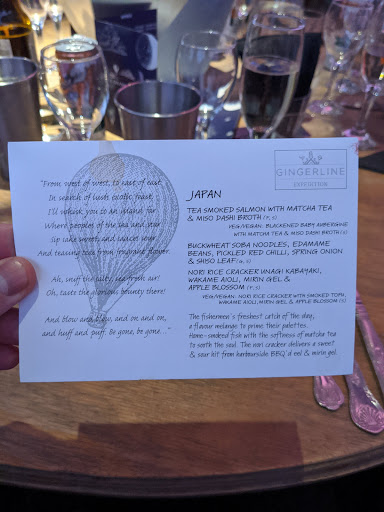 "From west of west, to east of east
In search of lush, exotic feast,
I'll whisk you to an island far
Where peoples of the sea and star
Sip sake sweet, and sauces sour
And teasing teas from fragrant flower.
Ah, sniff the salty, sea fresh air!
Oh, taste the glorious bounty there!
And blow and blow, and on and on,
and huff and puff. Be gone, be gone..."
GINGERLINE
EXPEDITION
JAPAN
TEA SMOKED SALMON WITH MATCHA TEA
& MISO DASHI BROTH (F, S)
VEG/VEGAN: BLACKENED BABY AUBERGINE
WITH MATCHA TEA & MISO DASHI BROTH (S)
BUCKWHEAT SOBA NOODLES, EDAMAME
BEANS, PICKLED RED CHILLI, SPRING ONION
& SHISO LEAF (S)
NORI RICE CRACKER UNAGI KABAYAKI,
WAKAME AIOLI, MIRIN GEL &
APPLE BLOSSOM (F, S)
VEG/VEGAN: NORI RICE CRACKER WITH SMOKED TOFU,
WAKAME AIOLI, MIRIN GEL & APPLE BLOSSOM (S)
The fishermen's freshest catch of the day,
a flavour melange to prime their palettes.
Home-smoked fish with the softness of matcha tea
to sooth the soul. The nori cracker delivers a sweet
& sour hit from harbourside BBQ'd eel & mirin gel.